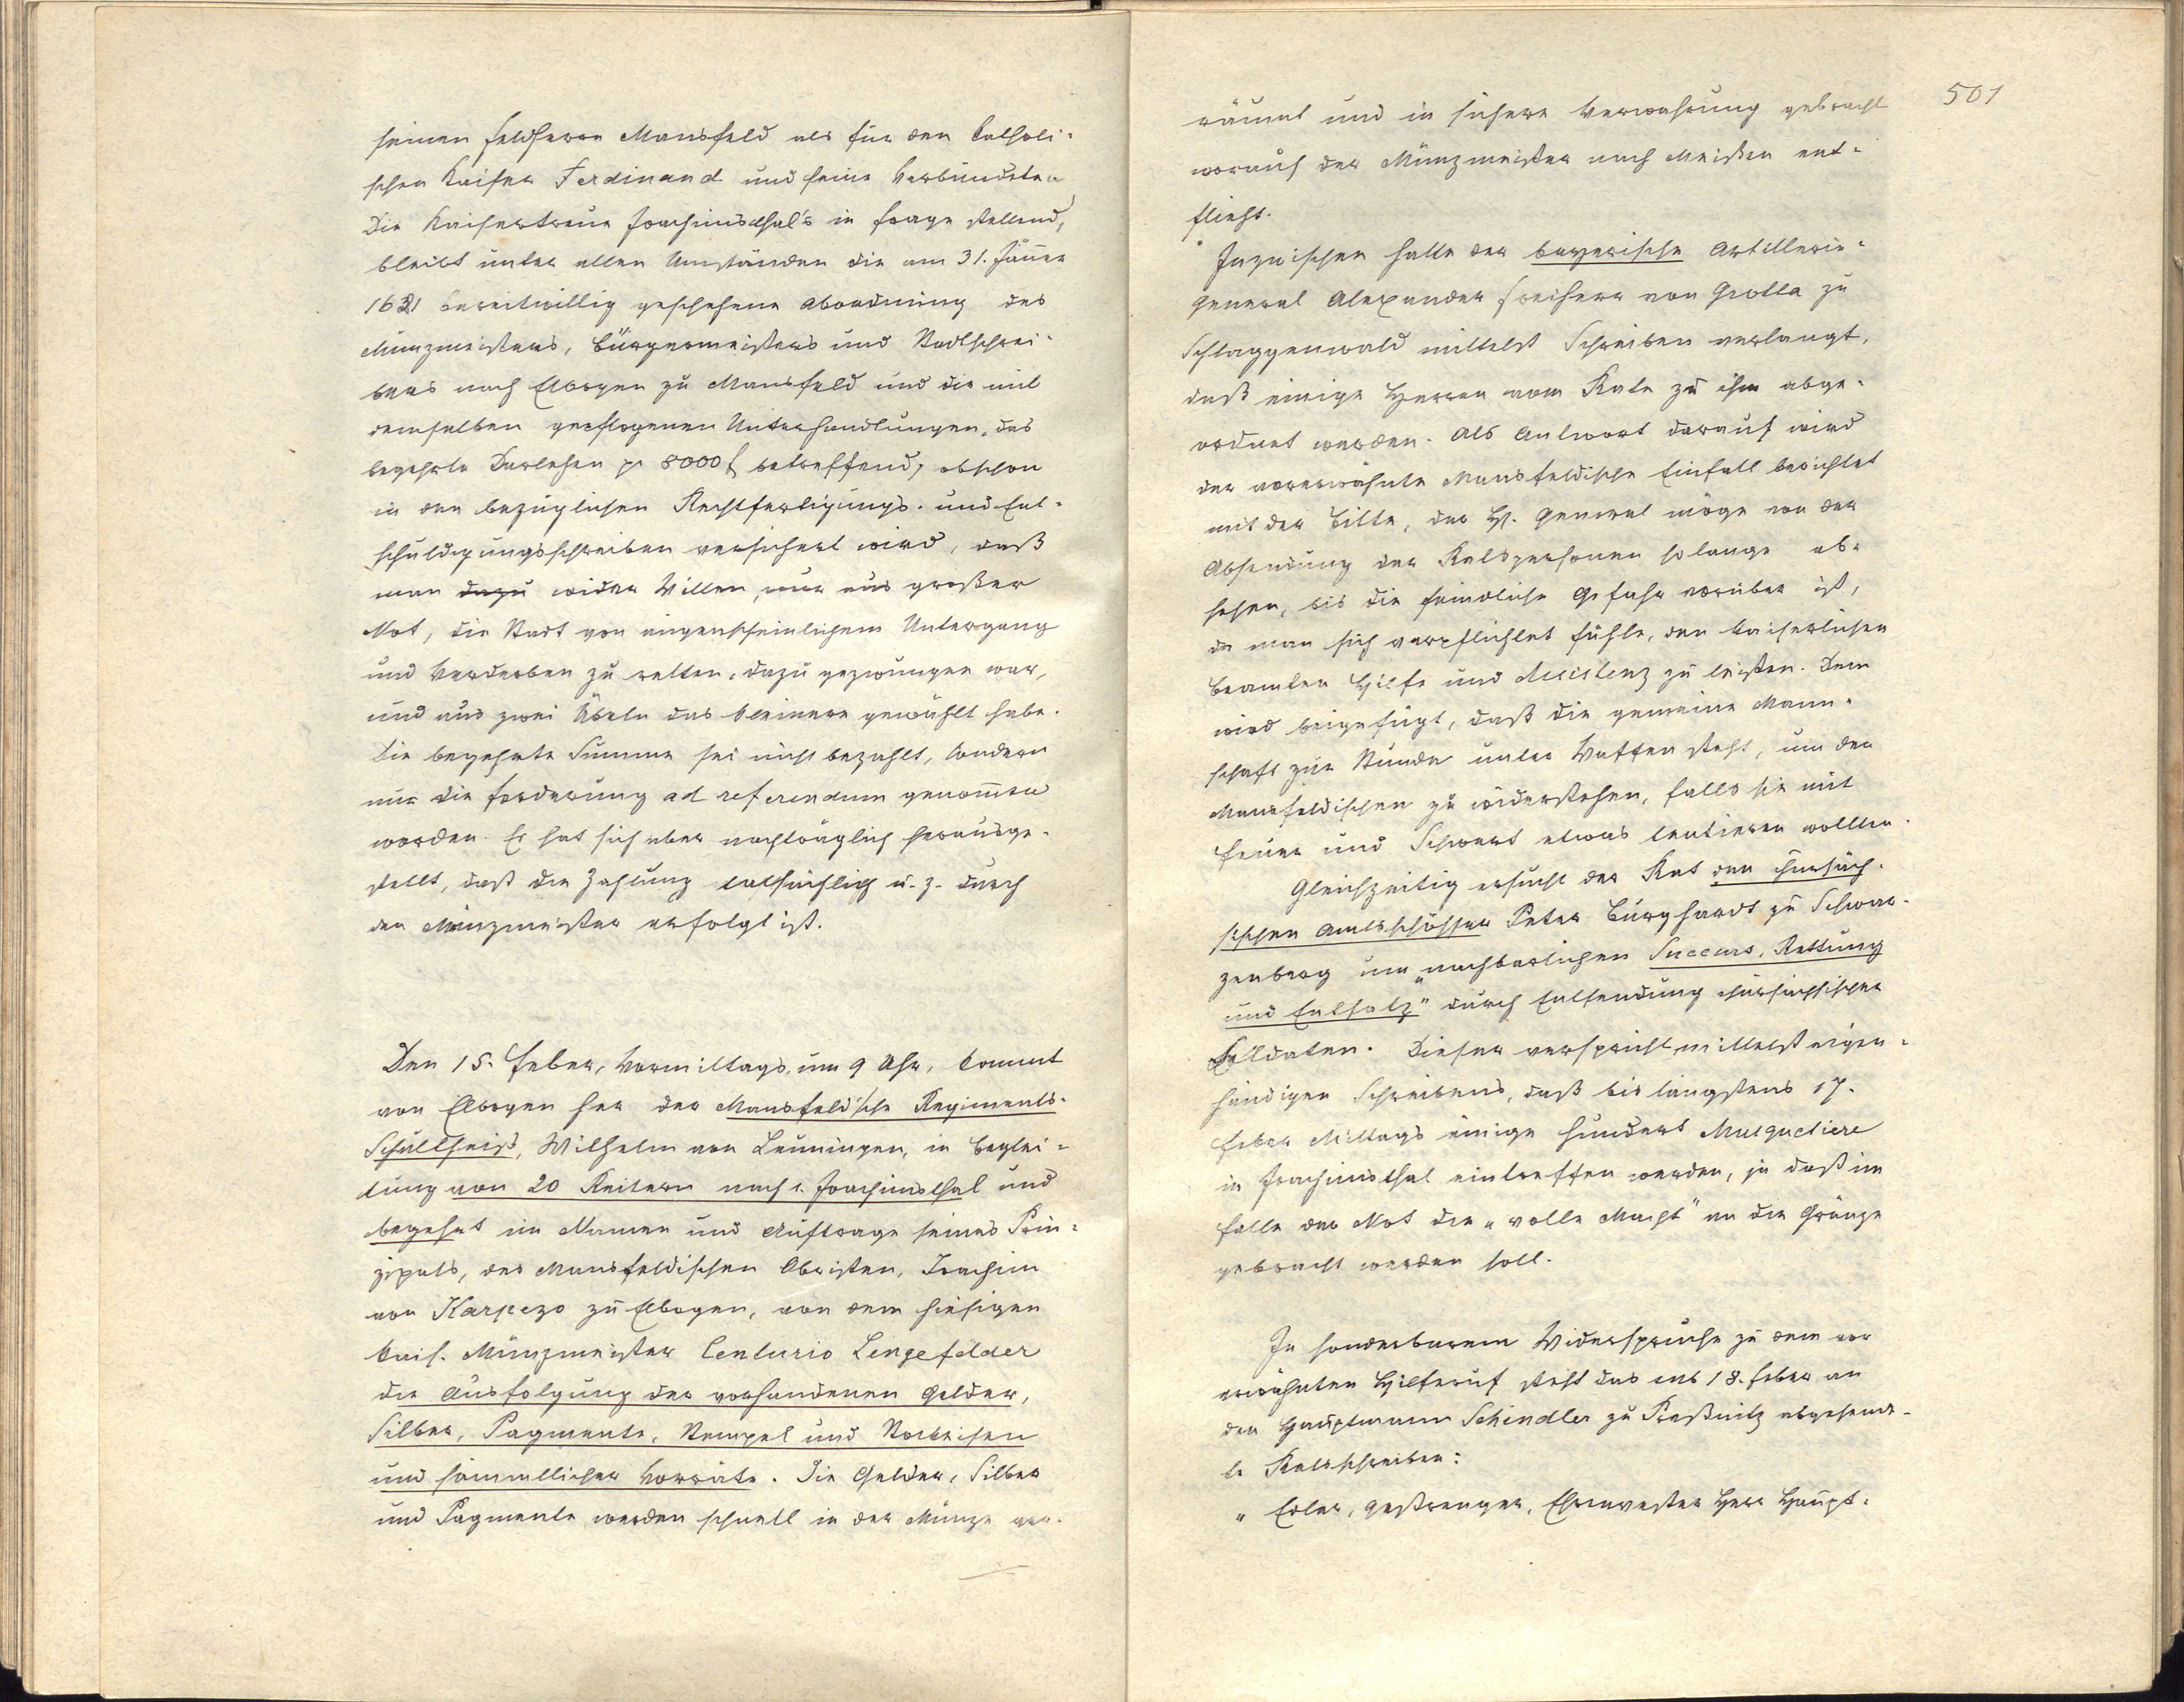 seinen Feldherrn Mansfeld als für den katholi-
schen Kaiser Ferdinand und seine Verbündeten
Die Kaisertreue Joachimsthal's in Frage stellend,
bleibt unter allen Umständen die am 31. Jänner
1621 bereitwillig geschehene Abordnung des
Münzmeisters, Bürgermeisters und Stadtschrei-
bers nach Elbogen zu Mansfeld und die mit
demselben gepflogenen Unterhandlungen, das
begehrte Darlehen pr 8000 f betreffend, obschon
in den bezüglichen Rechtfertigungs- und Ent-
schuldigungsschreiben versichert wird, daß
man dazu wider Willen, nur aus großer
Not, die Stadt von augenscheinlichem Untergang
und Verderben zu retten, dazu gezwungen war,
und aus zwei Übeln das kleinere gewählt habe.
Die begehrte Summe sei nicht bezahlt, sondern
nur die Forderung ad referendum genommen
worden. Es hat sich aber nachträglich herausge-
stellt, daß die Zahlung tatsächlich u. z. durch
den Münzmeister erfolgt ist.
Den 15. Feber, Vormittags um 9 Uhr, kommt
von Elbogen her der Mansfeld'sche Regiments-
Schultheiß, Wilhelm von Leiningen, in Beglei-
tung von 20 Reitern nach Joachimsthal und
begehrt im Namen und Auftrage seines Prin-
zipals, des Mansfeldischen Obristen, Joachim
von Karpezo zu Elbogen, von dem hiesigen
kais. Münzmeister Centurio Lengefelder
die Ausfolgung der vorhandenen Gelder,
Silber, Pagmente, Stempel und Stockeisen
und sämmtlicher Vorräte. Die Gelder, Silber
und Pagmente werden schnell in der Münze ge-
501
räumt und in sichere Verwahrung gebracht
worauf der Münzmeister nach Meißen ent-
flieht.
Inzwischen hatte der bayerische Artillerie-
General Alexander Freiherr von Grotta zu
Schlaggenwald mittelst Schreiben verlangt,
daß einige Herren vom Rate zu ihm abge-
ordnet werden. Als Antwort darauf wird
der vorerwähnte Mansfeldische Einfall berichtet
mit der Bitte, der H. General möge von der
Absendung der Ratspersonen solange ab-
sehen, bis die feindliche Gefahr vorüber ist,
da man sich verpflichtet fühle, den kaiserlichen
Beamten Hilfe und Assistenz zu leisten. Dem
wird beigefügt, daß die gemeine Mann-
schaft zur Stunde unter Waffen steht, um den
Mansfeldischen zu widerstehen, falls sie mit
Feuer und Schwert etwas tentieren wollten.
Gleichzeitig ersucht der Rat den chursäch-
sischen Amtsschösser Peter Burghardt zu Schwar-
zenberg um „nachbarlichen Succurs, Rettung
und Entsatz" durch Entsendung chursächsischer
Soldaten. Dieser verspricht mittelst eigen-
händigen Schreibens, daß bis längstens 17.
Feber Mittags einige hundert Musquetiere
in Joachimsthal eintreffen werden, ja daß im
Falle der Not die „volle Macht" an die Gränze
gebracht werden soll.
In sonderbarem Widerspruche zu dem vor
erwähnten Hilferuf steht das am 18. Feber an
den Hauptmann Schindler zu Preßnitz abgesende-
te Ratsschreiben:
„Edler, gestrenger, Ehrenvester Herr Haupt-